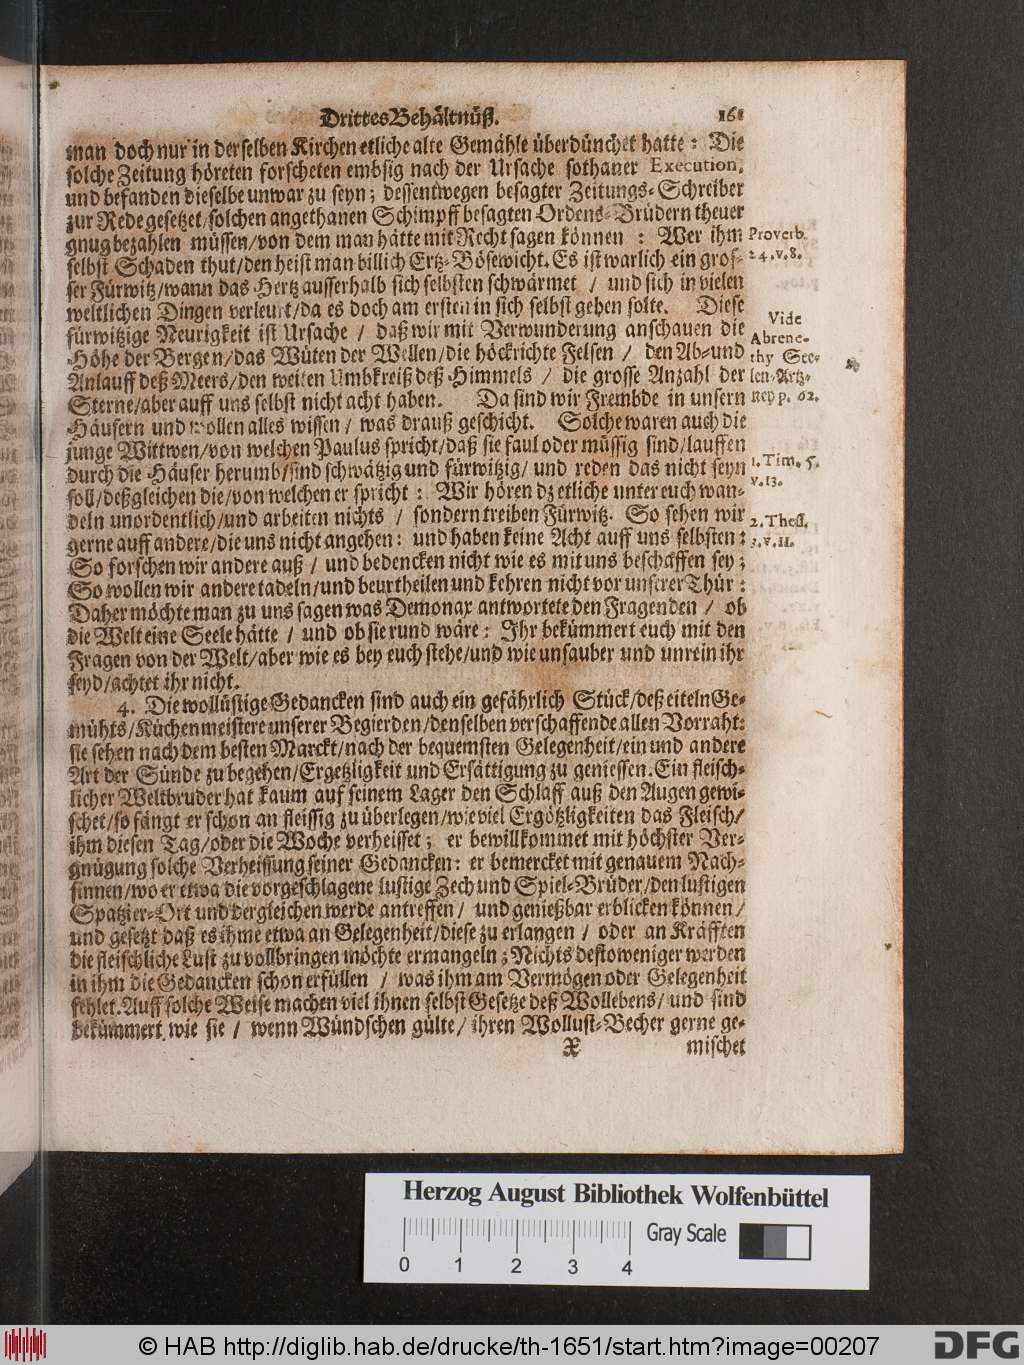 Drittes Behältnüß. 161
man doch nur in derselben Kirchen etliche alte Gemähle überdünchet hatte: Die
solche Zeitung höreten forscheten embsig nach der Ursache sothaner Execution,
und befanden dieselbe unwar zu seyn; dessentwegen besagter Zeitungs-Schreiber
zur Rede gesetzet/solchen angethanen Schimpff besagten Ordens-Brüdern theuer
gnug bezahlen müssen/von dem man hätte mit Recht sagen können: Wer ihm
Proverb.
selbst Schaden thut/den heist man billich Ertz-Bösewicht. Es ist warlich ein gros-
24.v.8.
ser Fürwitz/wann das Hertz ausserhalb sich selbsten schwärmet / und sich in vielen
weltlichen Dingen verleurt/da es doch am ersten in sich selbst gehen solte. Diese
Vide
fürwitzige Neurigkeit ist Ursache / daß wir mit Verwunderung anschauen die
Abrene-
Höhe der Bergen/das Wüten der Wellen/die höckrichte Felsen / den Ab-und
thy See-
Anlauff deß Meers/den weiten Umbkreiß deß Himmels / die grosse Anzahl der
len-Artz-
Sterne/aber auff uns selbst nicht acht haben. Da sind wir Frembde in unsern
ney p. 62.
Häusern und wollen alles wissen / was drauß geschicht. Solche waren auch die
junge Wittwen/von welchen Paulus spricht/daß sie faul oder müssig sind/lauffen
durch die Häuser herumb/sind schwätzig und fürwitzig/ und reden das nicht seyn
1. Tim. 5.
soll/deßgleichen die/von welchen er spricht: Wir hören dz etliche unter euch wan-
v.13.
deln unordentlich/und arbeiten nichts / sondern treiben Fürwitz. So sehen wir
2. Thess.
gerne auff andere/die uns nicht angehen: und haben keine Acht auff uns selbsten:
3.v.11.
So forschen wir andere auß / und bedencken nicht wie es mit uns beschaffen sey;
So wollen wir andere tadeln/und beurtheilen und kehren nicht vor unserer Thür:
Daher möchte man zu uns sagen was Demonax antwortete den Fragenden / ob
die Welt eine Seele hätte / und ob sie rund wäre: Ihr bekümmert euch mit den
Fragen von der Welt/aber wie es bey euch stehe/und wie unsauber und unrein ihr
seyd/achtet ihr nicht.
4. Die wollüstige Gedancken sind auch ein gefährlich Stück/deß eiteln Ge-
mühts/Küchenmeistere unserer Begierden/denselben verschaffende allen Vorraht:
sie sehen nach dem besten Marckt/nach der bequemsten Gelegenheit/ein und andere
Art der Sünde zu begehen/Ergetzligkeit und Ersättigung zu geniessen. Ein fleisch-
licher Weltbruder hat kaum auf seinem Lager den Schlaff auß den Augen gewi-
schet/so fängt er schon an fleissig zu überlegen/wie viel Ergötzligkeiten das Fleisch/
ihm diesen Tag/oder die Woche verheisset; er bewillkommet mit höchster Ver-
gnügung solche Verheissung seiner Gedancken: er bemercket mit genauem Nach-
sinnen/wo er etwa die vorgeschlagene lustige Zech und Spiel-Brüder/den lustigen
Spatzier-Ort und dergleichen werde antreffen/ und genießbar erblicken können/
und gesetzt daß es ihme etwa an Gelegenheit/diese zu erlangen / oder an Kräfften
die fleischliche Lust zu vollbringen möchte ermangeln; Nichts destoweniger werden
in ihm die Gedancken schon erfüllen / was ihm am Vermögen oder Gelegenheit
fehlet. Auff solche Weise machen viel ihnen selbst Gesetze deß Wollebens/ und sind
bekümmert wie sie / wenn Wündschen gülte/ ihren Wollust-Becher gerne ge-
X mischet
Herzog August Bibliothek Wolfenbüttel
0 1 2 3 4 Gray Scale
© HAB http://diglib.hab.de/drucke/th-1651/start.htm?image=00207
DFG